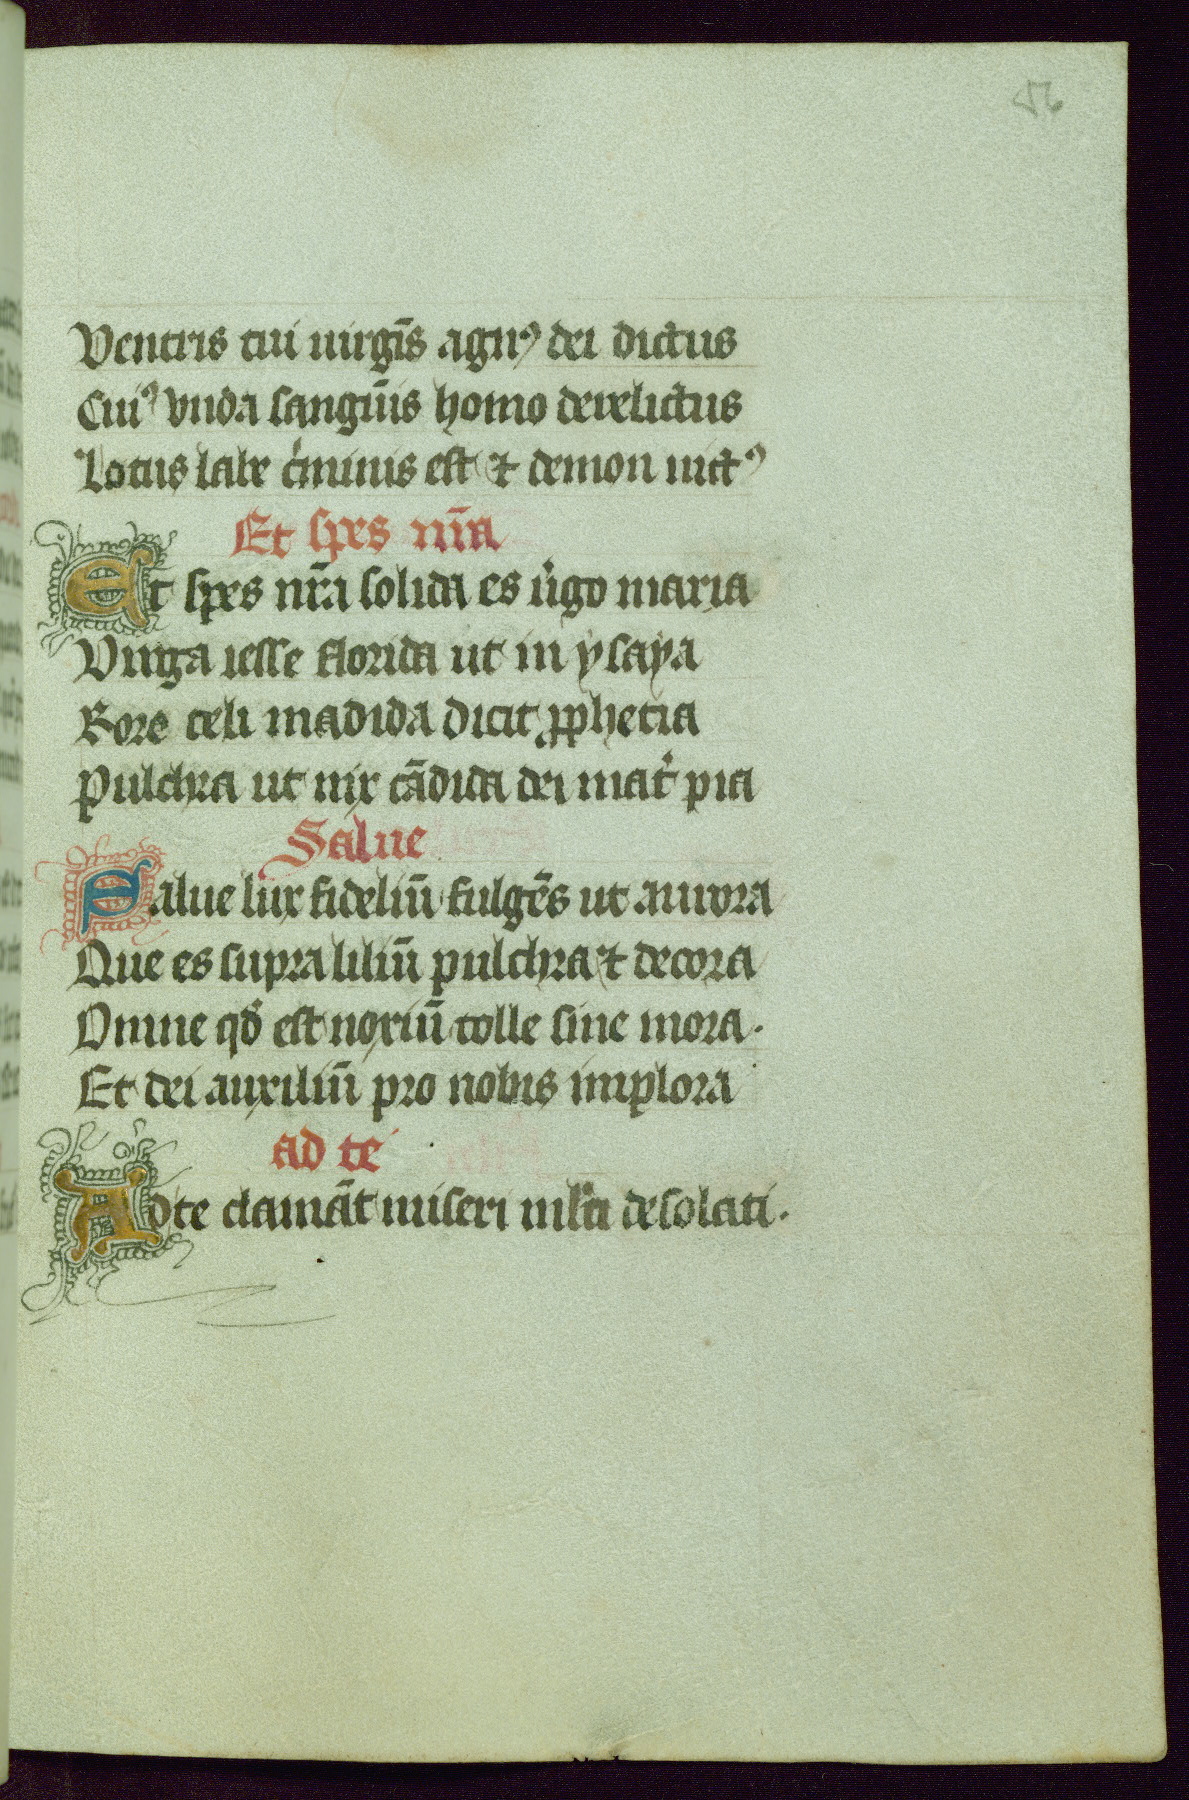 56
Ventris tui uirgīs agnꝰ dei dictus
Cuiꝰ vnda sanguīs homo derelictus
Lotus labe c̓minis est ⁊ demon uictꝰ
Et spes nr̄a
Et spes nr̄a solida es u̓go maria
Virga iesse florida ut in ysaya
Rore celi madida dicit ꝓphetia
Pulchra ut nix cādida dei mat̓ pia
Salue
Salue lux fideliū fulgēs ut aurora
Que es supra liliū pulchra ⁊ decora
Omne qd̓ est noxiū tolle sine mora.
Et dei auxiliū pro nobis implora
ad te
Ad te clamāt miseri desolati.